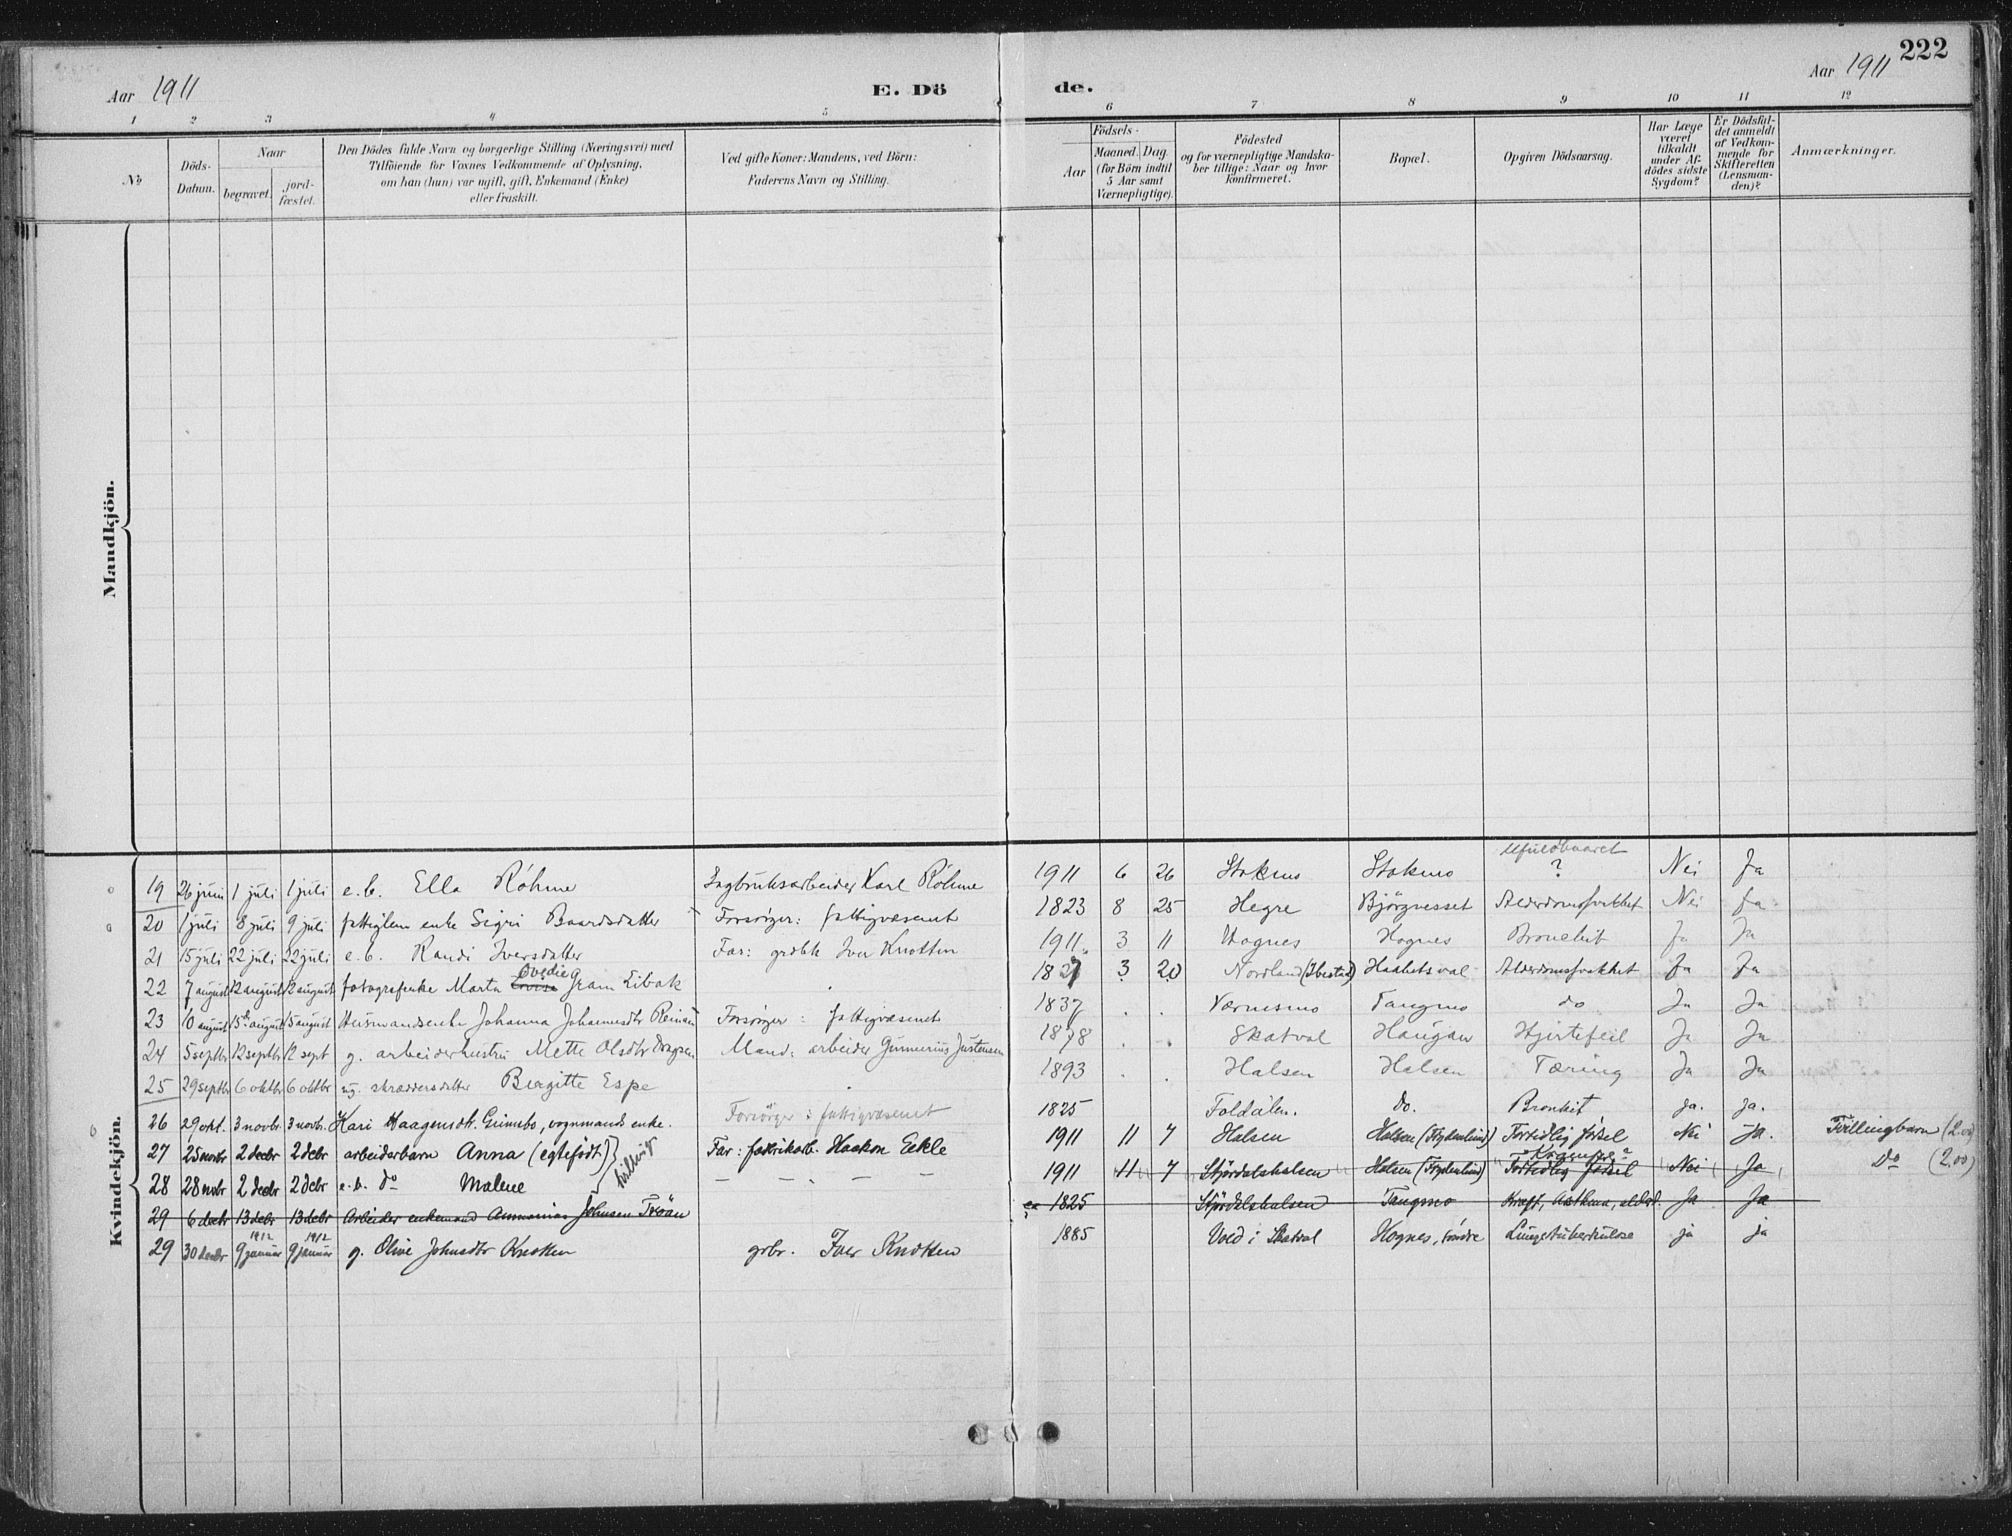 Aar 1911
E. Dö
de.
Aar 1911
222
1 2 3 4 5 6 7 8 9 10 11 12
No
Döds-
Datum.
Naar
begravet.
jord-
fæstet.
Den Dödes fulde Navn og borgerlige Stilling (Næringsvei) med
Tilföiende for Voxnes Vedkommende af Oplysning,
om han (hun) var ugift, gift, Enkemand (Enke)
eller fraskilt.
Ved gifte Koner: Mandens, ved Börn:
Faderens Navn og Stilling.
Födsels-
Aar
Maaned. Dag.
(for Börn indtil
5 Aar samt
Værnepligtige).
Födested
og for værnepligtige Mandska-
ber tillige: Naar og hvor
konfirmeret.
Bopæl.
Opgiven Dödsaarsag.
Har Læge
været
tilkaldt
under Af-
dödes sidste
Sygdom?
Er Dödsfal-
det anmeldt
af Vedkom-
mende for
Skifteretten
(Lensman-
den)?
Anmærkninger.
Mandkjön.
Kvindekjön.
Ufuldbaaret
19 26 juni 1 juli 1 juli e.b. Ella Röhme Sagbruksarbeider Karl Röhme 1911 6 26 Stokmo Stokmo ? Nei Ja
20 1 juli 8 juli 9 juli fattiglem enke Sigri Baardsdatter Forsörger: fattigvæsenet 1823 8 25 Hegre Björgvesset Alderdomssvakhet Nei Ja
21 15 juli 22 juli 22 juli e.b. Randi Iversdatter Far: grdbk Iver Knotten 1911 3 11 Hognes Hognes Bronchit Ja Ja
Ovedie
22 7 august 12 august 12 august fotografenke Marta Gram Libak 1827 3 20 Nordland (Ibestad) Alderdomssvakhet Ja Ja
23 10 august 15 august 15 august Husmandsenke Johanna Johannesdtr Reinaa Forsörger: fattigvæsenet 1837 . . Værnesmo Tangmo do Ja Ja
24 5 septbr 12 septbr 12 sept g. arbeiderhustru Mette Olsdtr Mand: arbeider Gunnerius Justensen 1878 . . Skatval Haugan Hjertefeil Ja Ja
25 29 septbr 6 oktbr 6 oktbr ug. skræddersdatter Bergitte Espe 1893 . . Halsen Halsen Tæring Ja Ja
26 29 okt. 3 novbr. 3 novbr. Kari Haagensdtr. Grimsbo, vognmands enke. Forsörger: fattigvæsenet 1825 Foldalen. Do. Bronkit ja. ja.
27 25 novbr 2 decbr 2 decbr arbeiderbarn Anna (egtefödt) tvillinger Far: fabrikarb. Haakon Eekle 1911 11 7 Halsen Halsen (Frydenlund) Fortidlig födsel Nei Ja. Tvillingbarn (2.00)
Krampe?
28 28 novbr 2 decbr 2 decbr e.b. do Malene — — . — — 1911 11 7 Stjördalshalsen Halsen (Frydenlund) Fortidlig födsel Nei Ja Do (2.00)
29 6 decbr 13 decbr 13 decbr Arbeider enkemand Ammonius Johnsen Tröan ca 1825 Stjördalshalsen Tangmo Kræft, Asthma, alderd. Ja Ja
1912 1912
29 30 decbr 9 januar 9 januar g. Olive Johnsdtr Knotten grbr. Iver Knotten 1885 Vold i Skatval Hognes, söndre Lungetuberkulose ja ja